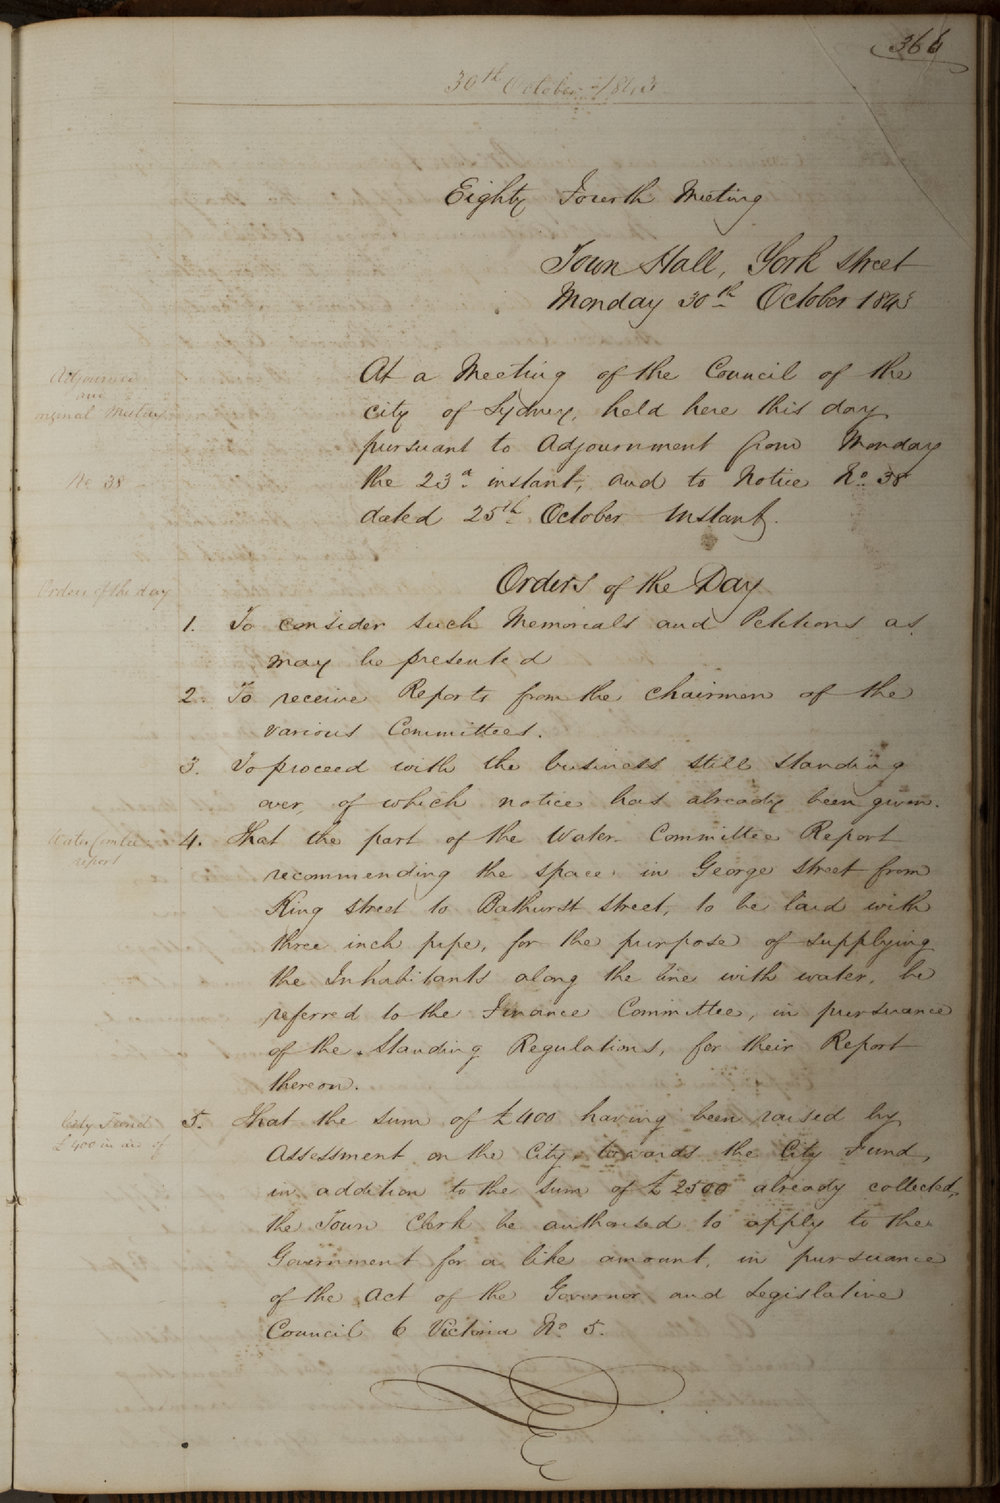 30th October 1843
Eighty Fourth Meeting
Town Hall, York Street
Monday 30th October 1843
Adjourned
and
original Meeting
At a Meeting of the Council of the
city of Sydney, held here this day
pursuant to Adjournment from Monday
No 38
the 23d instant, and to Notice No 38
dated 25th October Instant.
Orders of the day
Orders of the Day
1. To consider such Memorials and Petitions as
may be presented
2. To receive Reports from the Chairmen of the
various Committees.
3. To proceed with the business still standing
over, of which notice has already been given.
Water Comtee
report
4. That the part of the Water Committee Report
recommending the space in George Street from
King street to Bathurst Street, to be laid with
three inch pipe, for the purpose of supplying
the Inhabitants along the line with water, be
referred to the Finance Committee, in pursuance
of the Standing Regulations, for their Report
thereon.
City Fund
£400 in aid of
5. That the sum of £400 having been raised by
Assessment on the City towards the City Fund,
in addition to the sum of £2500 already collected,
the Town Clerk be authorised to apply to the
Government for a like amount, in pursuance
of the Act of the Governor and Legislative
Council 6 Victoria No 5.